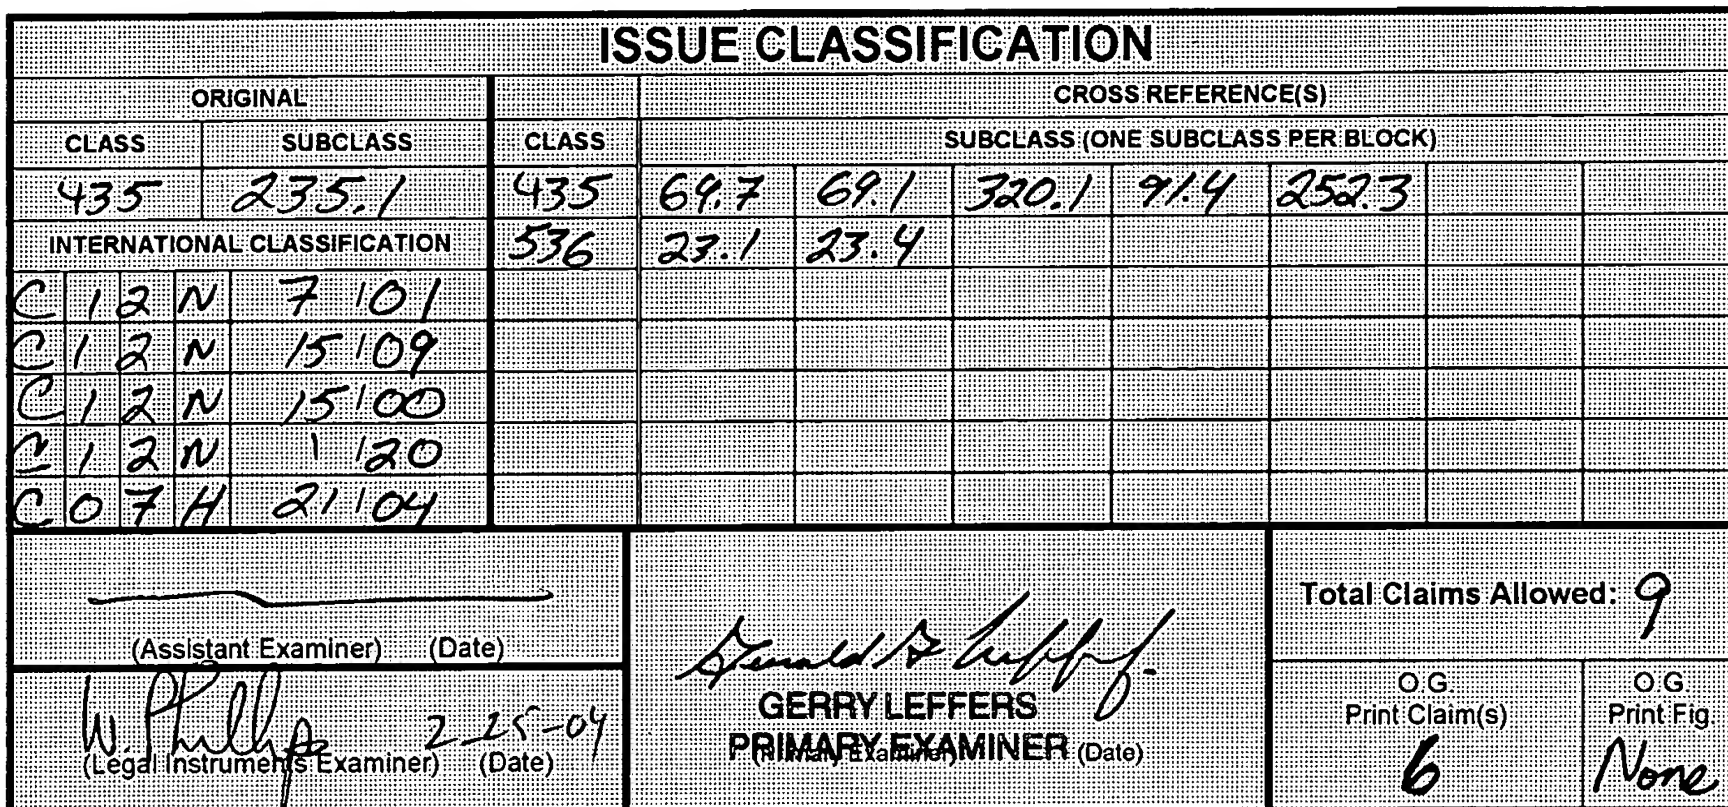 ISSUE CLASSIFICATION
ORIGINAL CROSS REFERENCE(S)
CLASS SUBCLASS CLASS SUBCLASS (ONE SUBCLASS PER BLOCK)
435 235.1 435 69.7 69.1 320.1 91.4 252.3
INTERNATIONAL CLASSIFICATION 536 23.1 23.4
C 12 N 7 / 01
C 12 N 15 / 09
C 12 N 15 / 00
C 12 N 1 / 20
C 07 H 21 / 04
(Assistant Examiner) (Date)
W. Phillips 2-25-04
(Legal Instruments Examiner) (Date)
Gerald G Leffers Jr.
GERRY LEFFERS
PRIMARY EXAMINER
(Primary Examiner) (Date)
Total Claims Allowed: 9
O.G.
Print Claim(s)
6
O.G.
Print Fig.
None